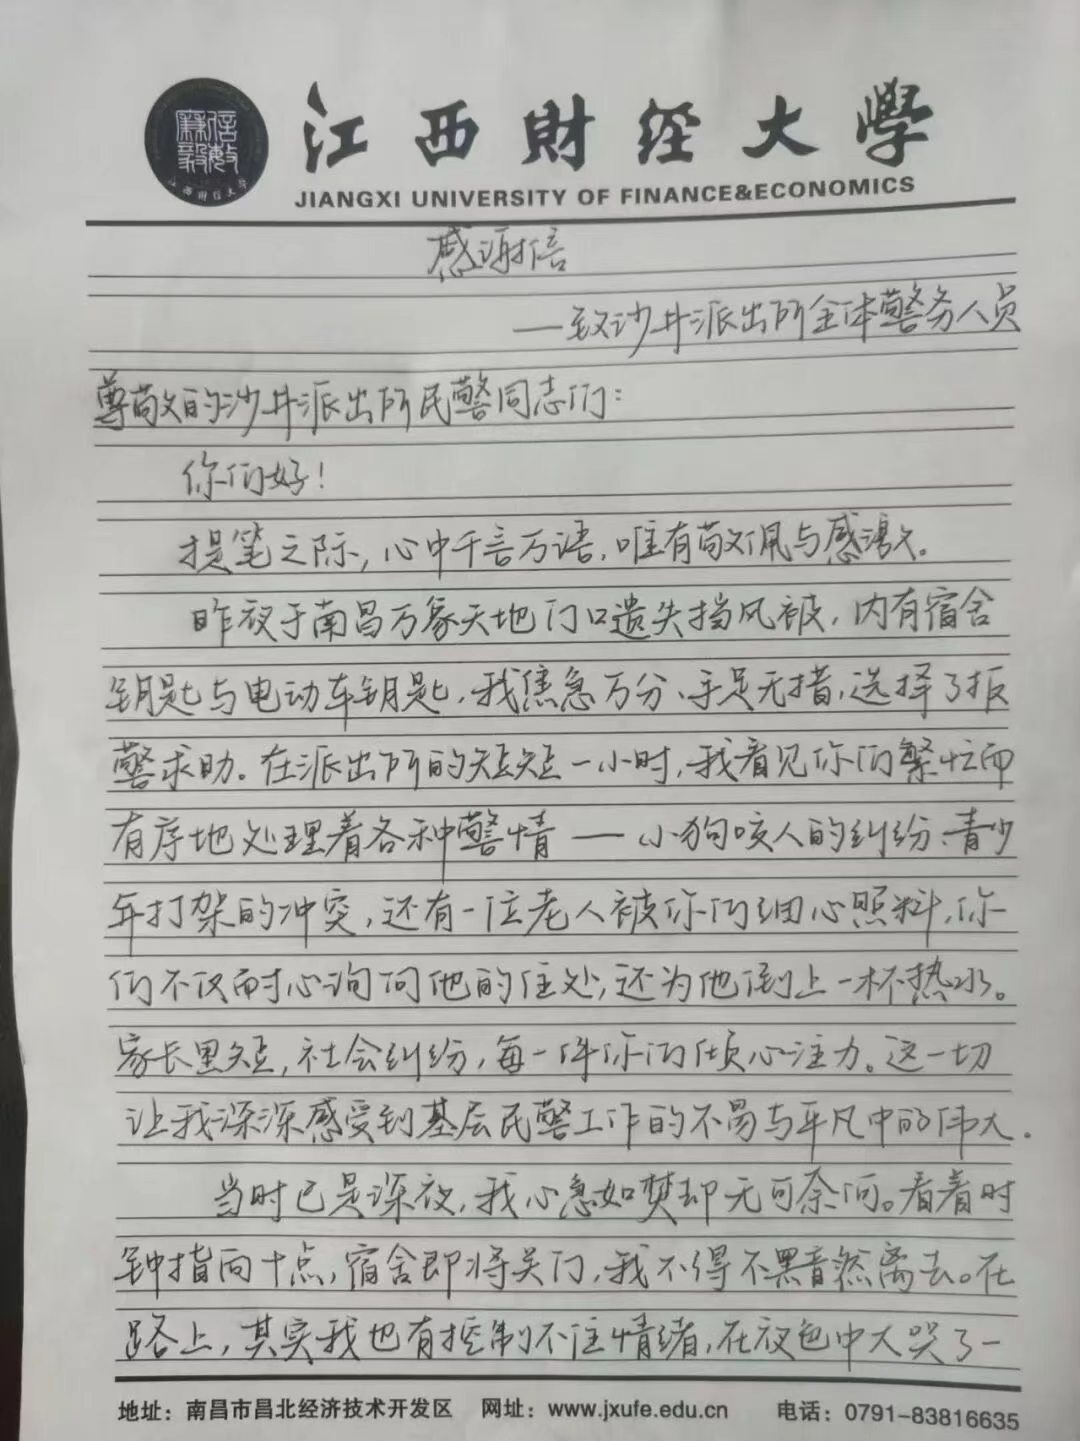 江西财经大学
JIANGXI UNIVERSITY OF FINANCE&ECONOMICS
感谢信
——致沙井派出所全体警务人员
尊敬的沙井派出所民警同志们:
你们好!
提笔之际,心中千言万语,唯有敬佩与感激。
昨夜于南昌万象天地门口遗失挡风被,内有宿舍
钥匙与电动车钥匙,我焦急万分、手足无措,选择了报
警求助。在派出所的短短一小时,我看见你们繁忙而
有序地处理着各种警情——小狗咬人的纠纷、青少
年打架的冲突,还有一位老人被你们细心照料,你
们不仅耐心询问他的住处,还为他倒上一杯热水。
家长里短,社会纠纷,每一件你们倾心注力。这一切
让我深深感受到基层民警工作的不易与平凡中的伟大.
当时已是深夜,我心急如焚却无可奈何。看着时
钟指向十点,宿舍即将关门,我不得不黯然离去。在
路上,其实我也有控制不住情绪,在夜色中大哭了一
地址:南昌市昌北经济技术开发区 网址:www.jxufe.edu.cn 电话:0791-83816635